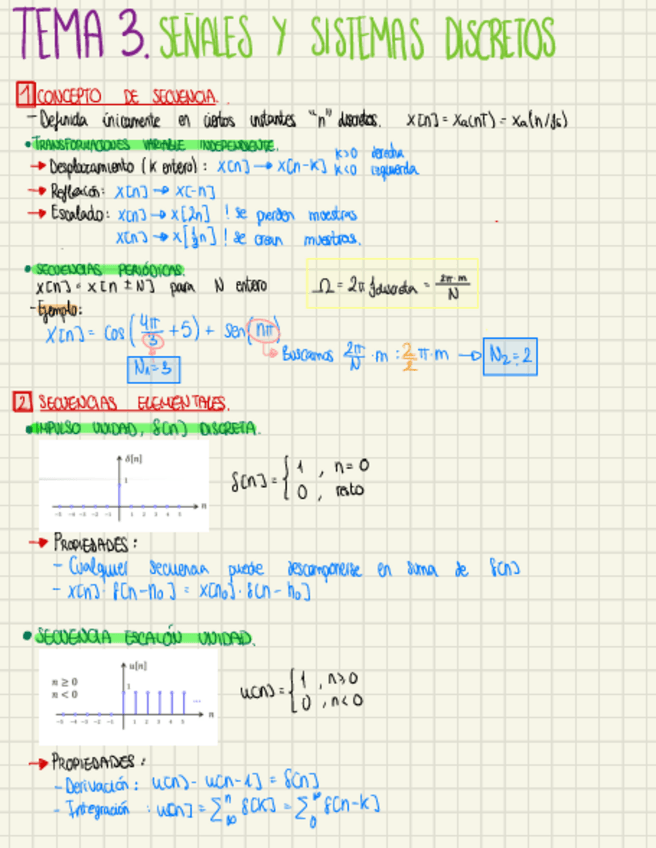 TEMA 3. SEÑALES Y SISTEMAS DISCRETOS
1 CONCEPTO DE SECUENCIA.
- Definida únicamente en ciertos instantes "n" discretos. x[n] = xa(nT) = xa(n/fs)
• TRANSFORMACIONES VARIABLE INDEPENDIENTE.
→ Desplazamiento (k entero): x[n] → x[n-k] k>0 derecha
k<0 izquierda
→ Reflexión: x[n] → x[-n]
→ Escalado: x[n] → x[2n] ! se pierden muestras
x[n] → x[½n] ! se crean muestras.
• SECUENCIAS PERIÓDICAS.
x[n] = x[n ± N] para N entero Ω = 2π fdiscreta = 2π·m/N
- Ejemplo:
x[n] = cos(4π/3 + 5) + sen(nπ)
Buscamos 2π/N · m : 2/2 π·m → N2 = 2
N1 = 3
2 SECUENCIAS ELEMENTALES.
• IMPULSO UNIDAD, δ[n] DISCRETA.
δ[n]
1
n
-5 -4 -3 -2 -1 1 2 3 4 5
δ[n] = { 1 , n = 0
0 , resto
→ PROPIEDADES:
- Cualquier secuencia puede descomponerse en suma de δ[n]
- x[n] · δ[n-n0] = x[n0] · δ[n-n0]
• SECUENCIA ESCALÓN UNIDAD.
u[n]
n ≥ 0
n < 0
1
...
n
-5 -4 -3 -2 -1 1 2 3 4 5
u[n] = { 1 , n≥0
0 , n<0
→ PROPIEDADES:
- Derivación: u[n] - u[n-1] = δ[n]
- Integración: u[n] = Σ δ[k] = Σ δ[n-k]